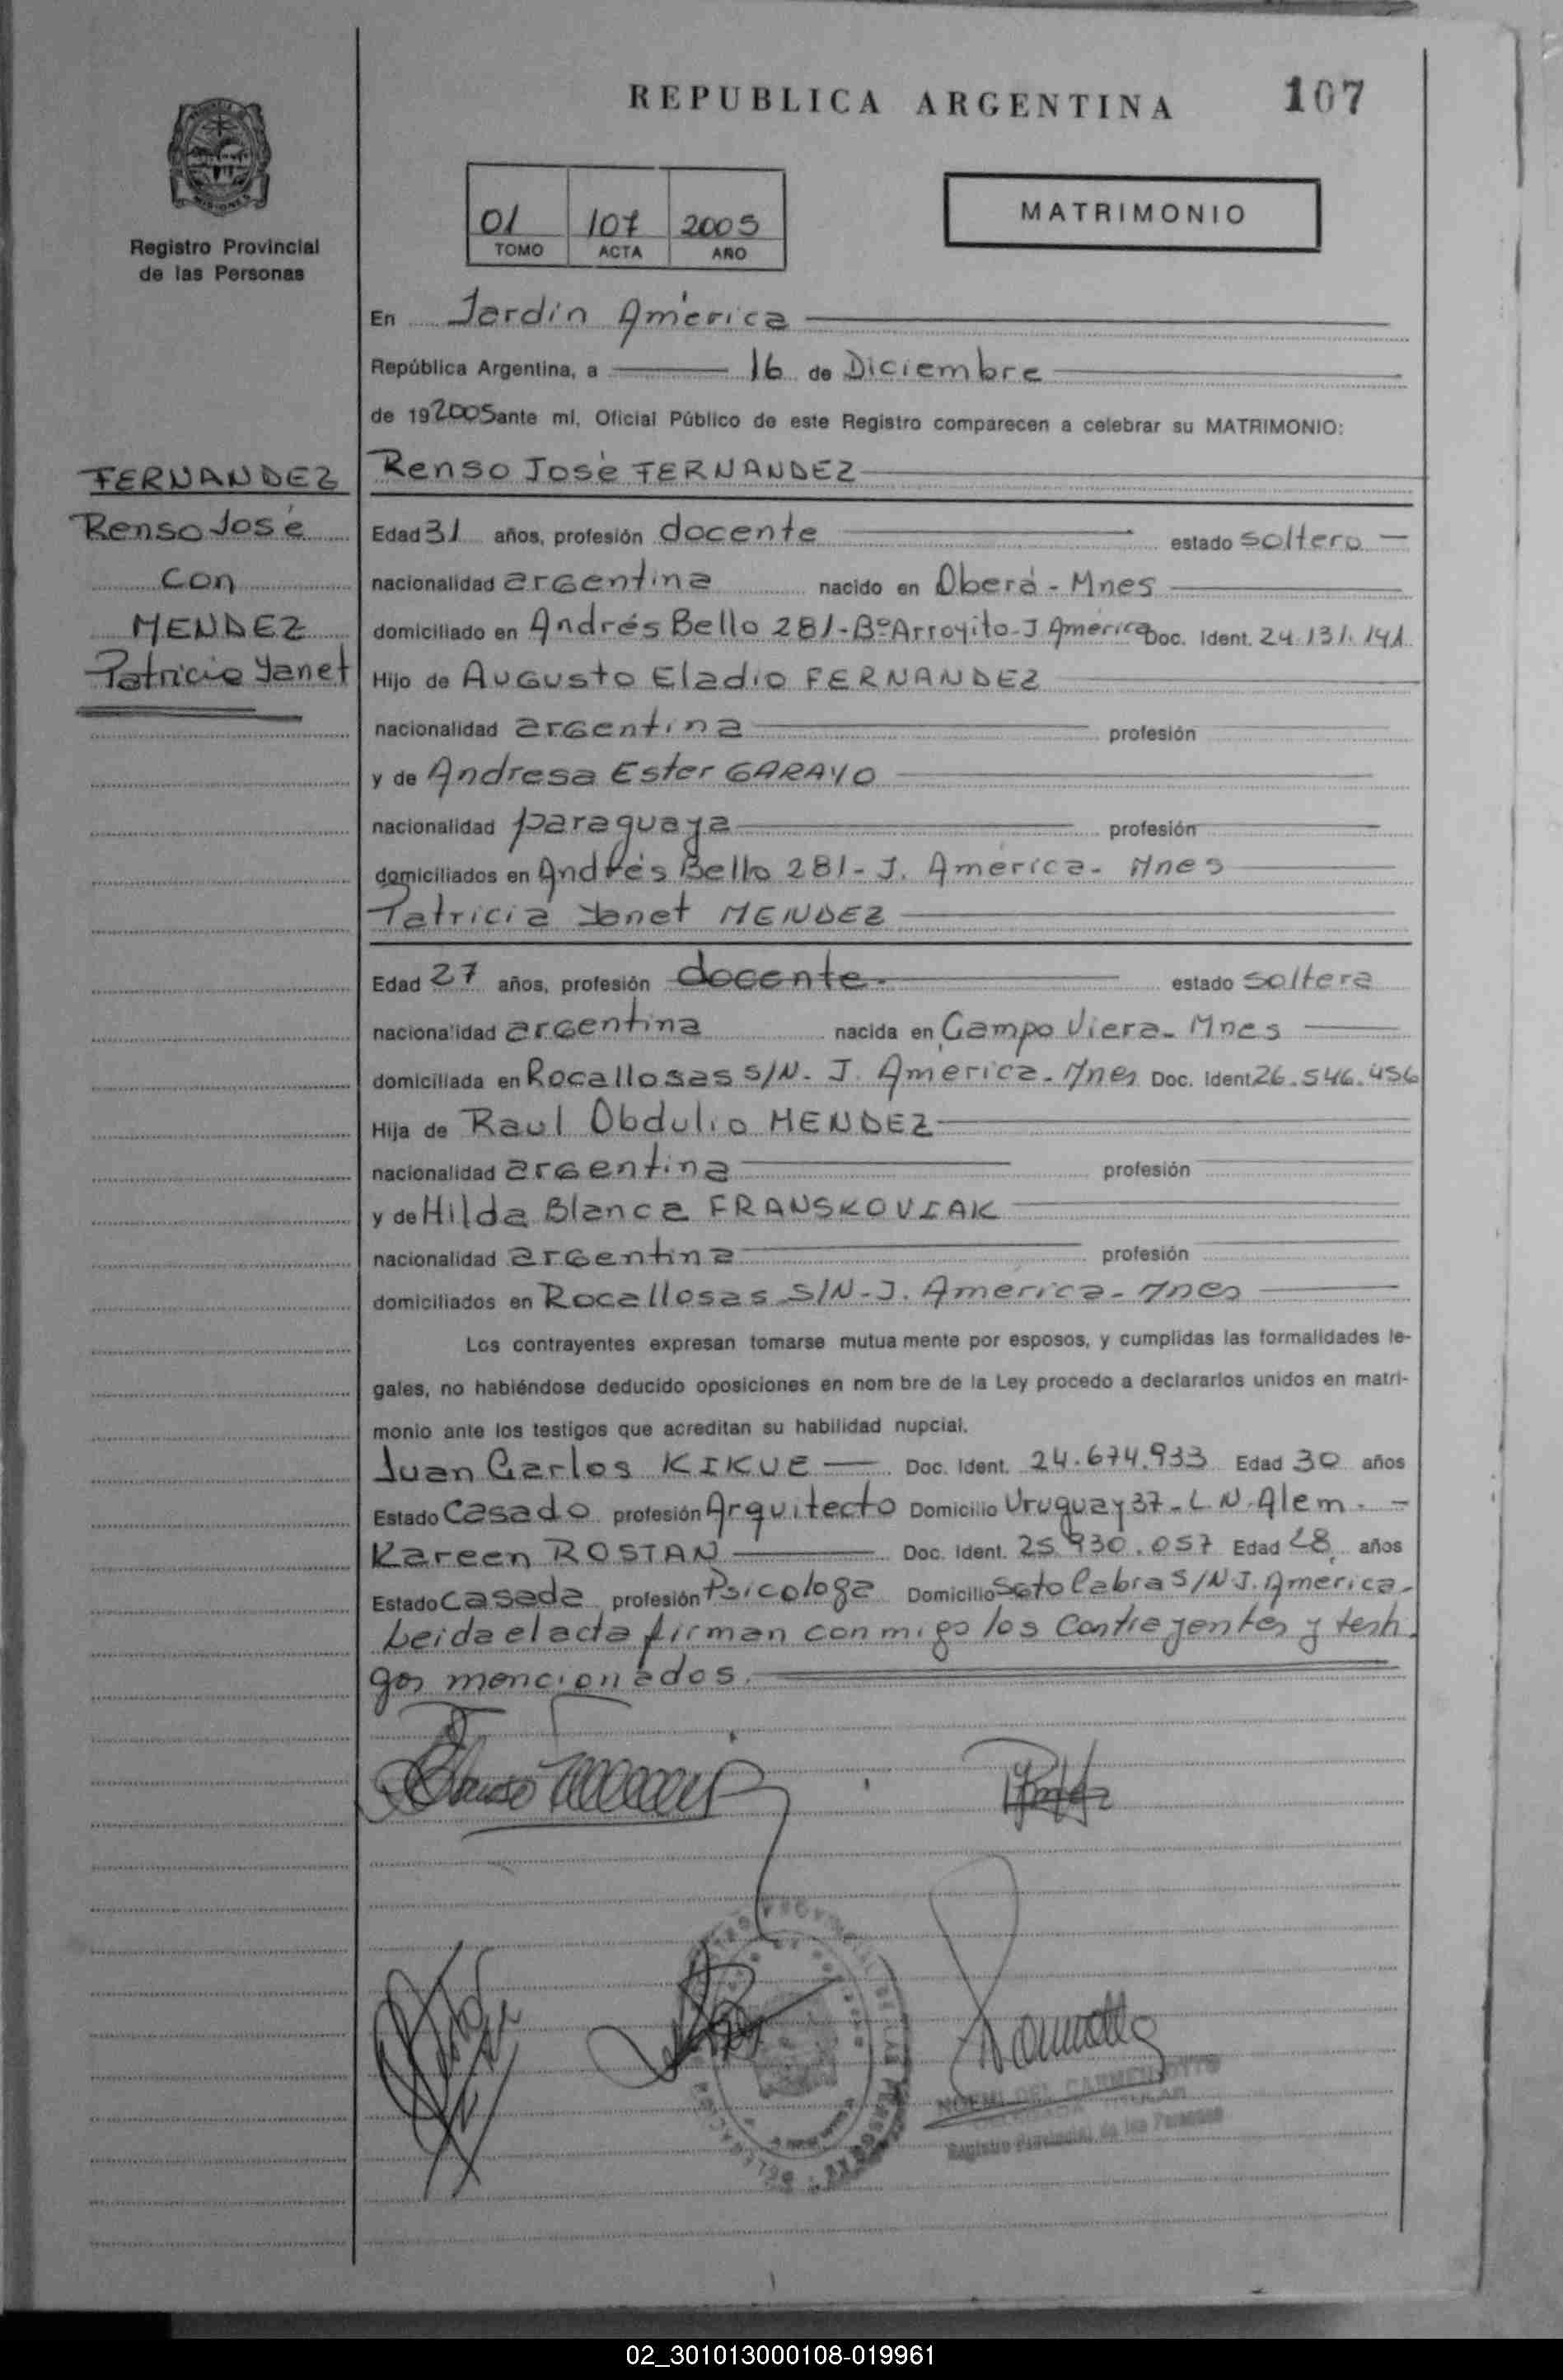 REPUBLICA ARGENTINA
107
Registro Provincial
de las Personas
01 107 2005
TOMO ACTA AÑO
MATRIMONIO
En Jardín América
República Argentina, a 16 de Diciembre
de 192005 ante mí, Oficial Público de este Registro comparecen a celebrar su MATRIMONIO:
FERNANDEZ
Renso José
con
MENDEZ
Patricia Yanet
Renso José FERNANDEZ
Edad 31 años, profesión docente estado soltero
nacionalidad argentina nacido en Oberá - Mnes
domiciliado en Andrés Bello 281 - Bº Arroyito - J América Doc. Ident. 24.131.141
Hijo de Augusto Eladio FERNANDEZ
nacionalidad argentina profesión
y de Andresa Ester GARAYO
nacionalidad paraguaya profesión
domiciliados en Andrés Bello 281 - J. América - Mnes
Patricia Yanet MENDEZ
Edad 27 años, profesión docente estado soltera
nacionalidad argentina nacida en Campo Viera - Mnes
domiciliada en Rocallosas S/N - J. America - Mnes Doc. Ident 26.546.456
Hija de Raul Obdulio MENDEZ
nacionalidad argentina profesión
y de Hilda Blanca FRANSKOVIAK
nacionalidad argentina profesión
domiciliados en Rocallosas S/N - J. America - Mnes
Los contrayentes expresan tomarse mutua mente por esposos, y cumplidas las formalidades le-
gales, no habiéndose deducido oposiciones en nom bre de la Ley procedo a declararlos unidos en matri-
monio ante los testigos que acreditan su habilidad nupcial.
Juan Carlos KIKUE Doc. Ident. 24.674.933 Edad 30 años
Estado Casado profesión Arquitecto Domicilio Uruguay 37 - L.N. Alem.
Kareen ROSTAN Doc. Ident. 25.930.057 Edad 28 años
Estado Casada profesión Psicologa Domicilio S/N J. America.
Leida el acta firman conmigo los contrayentes y testi
gos mencionados.
NOEMI DEL CARMEN
Registro Provincial de las Personas
02_301013000108-019961